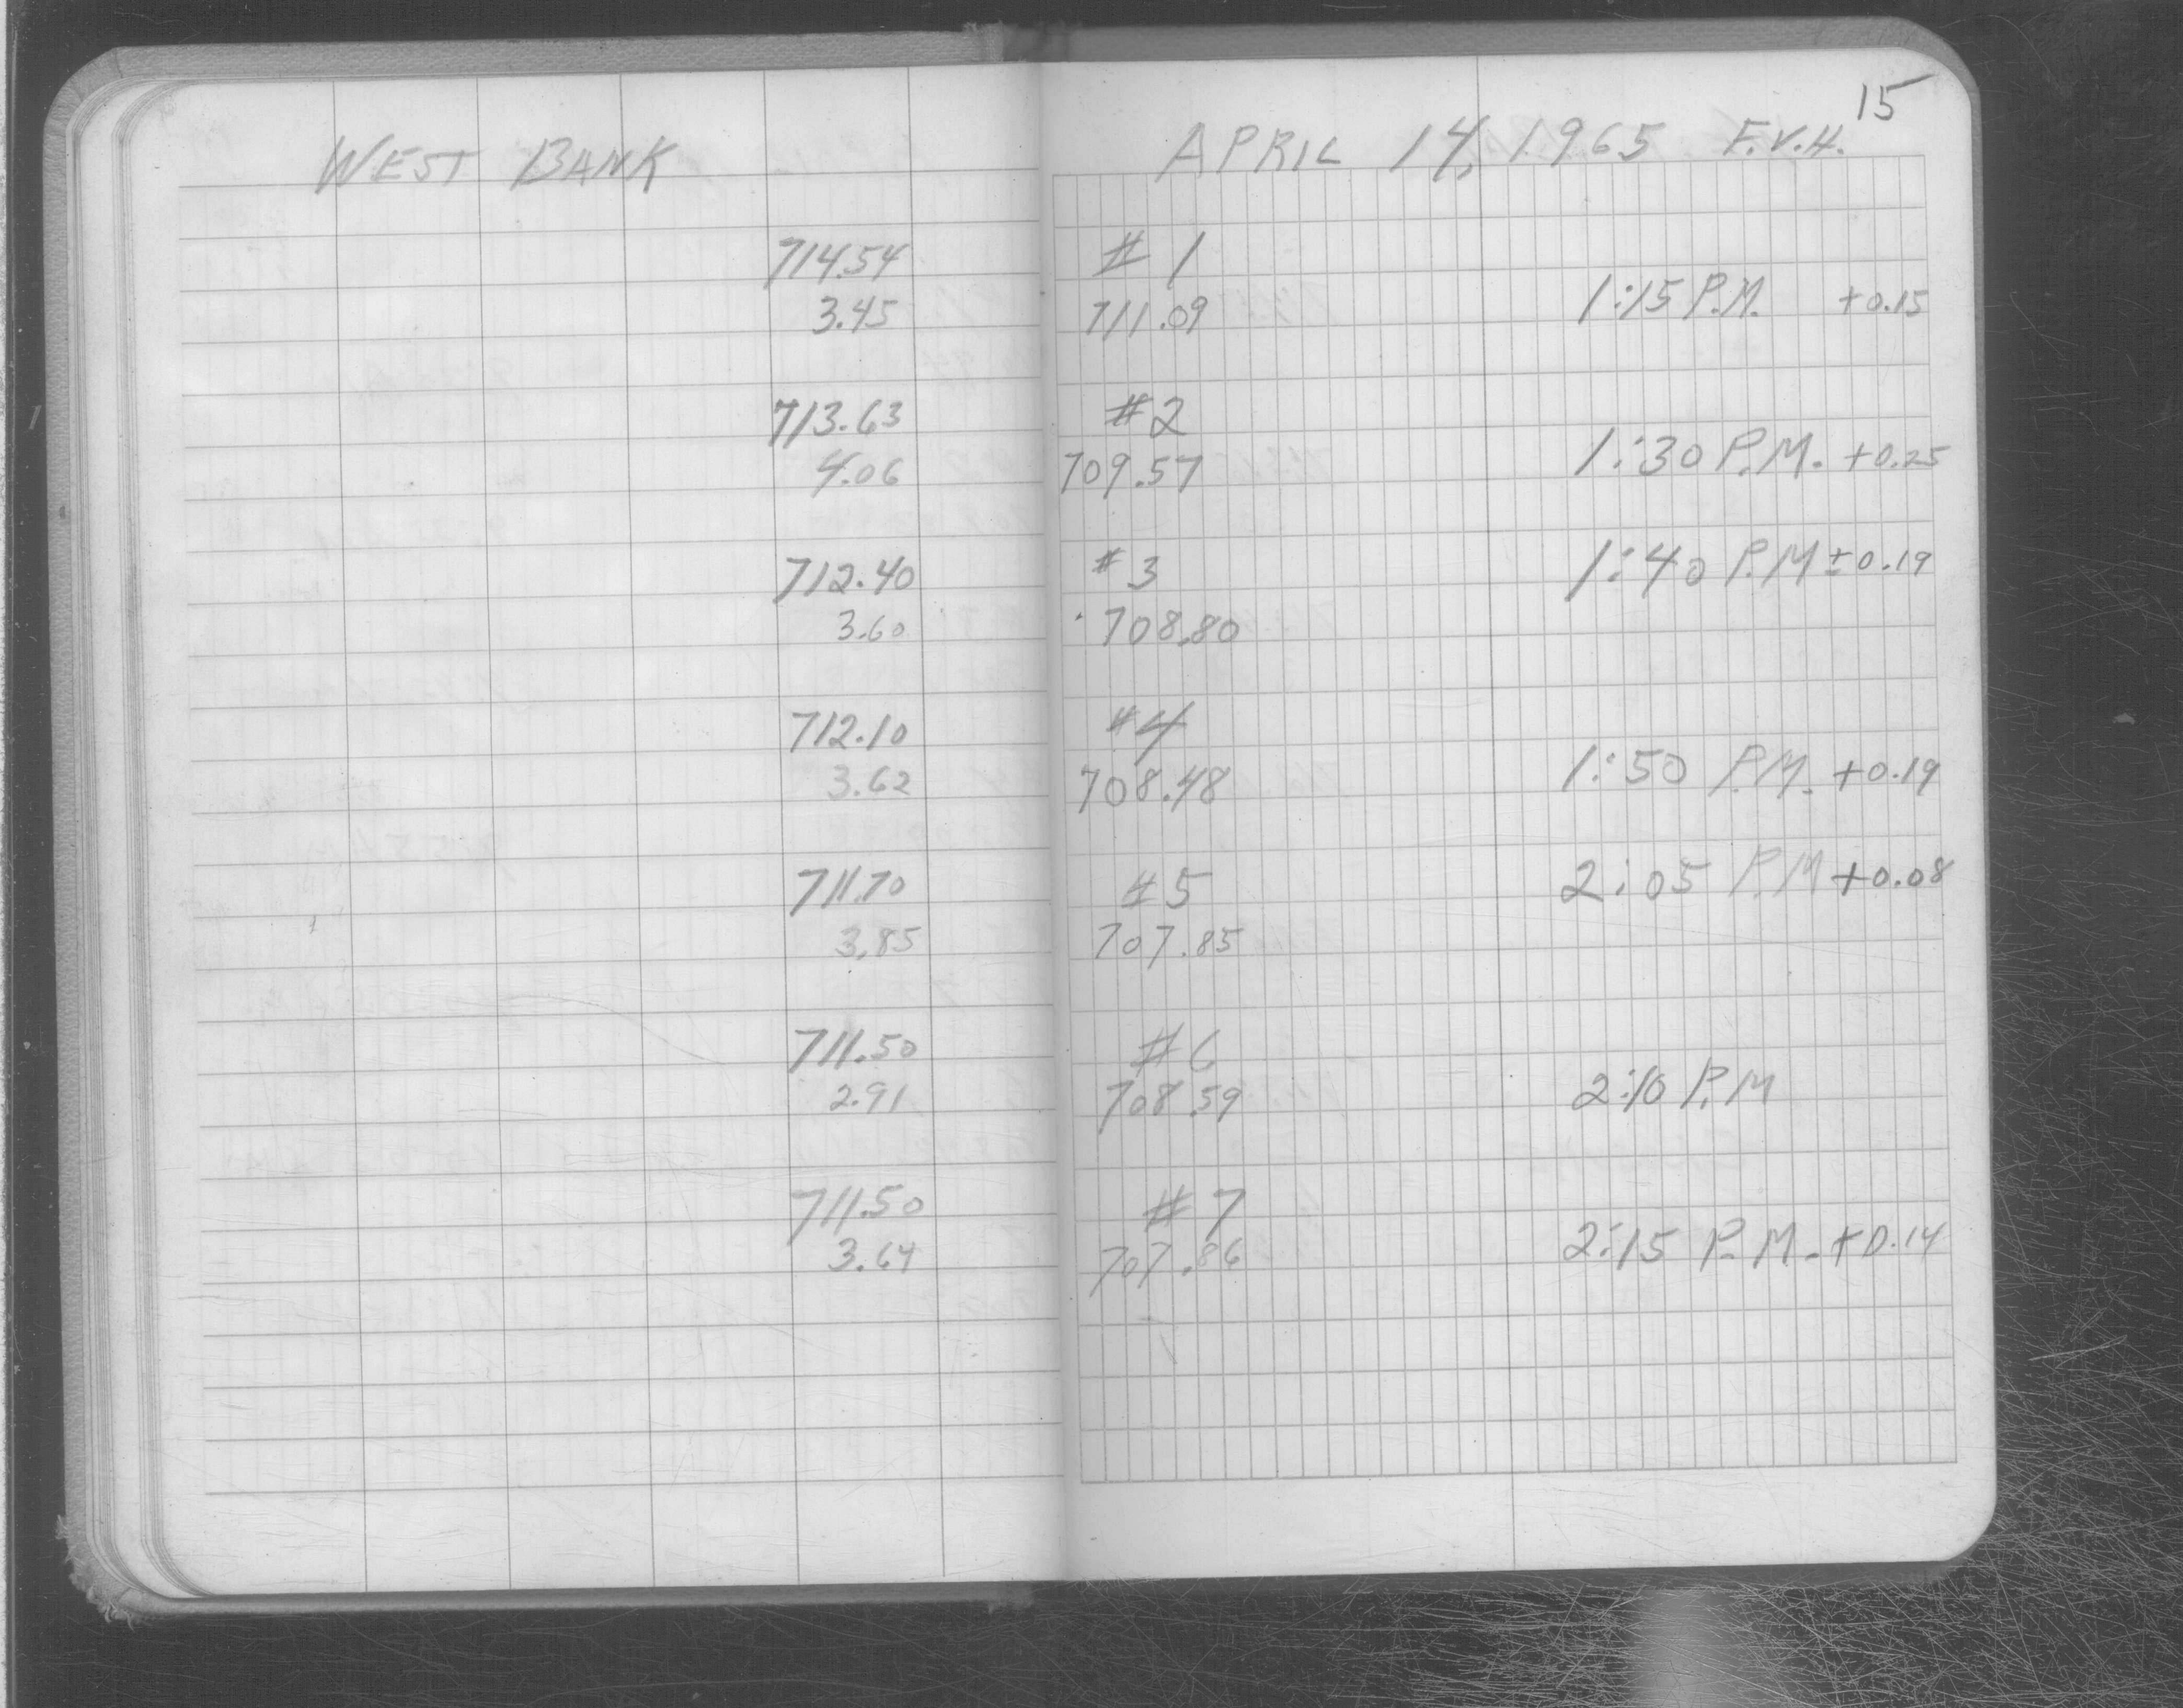 15
WEST BANK APRIL 14, 1965 F.V.H.
714.54 # 1
3.45 711.09 1:15 P.M. +0.15
713.63 #2
4.06 709.57 1:30 P.M. +0.25
712.40 #3 1:40 P.M ±0.19
3.60 708.80
712.10 #4
3.62 708.48 1:50 P.M. +0.19
711.70 #5 2:05 P.M +0.08
3.85 707.85
711.50 #6
2.91 708.59 2:10 P.M
711.50 #7
3.64 707.86 2:15 P.M. +0.14